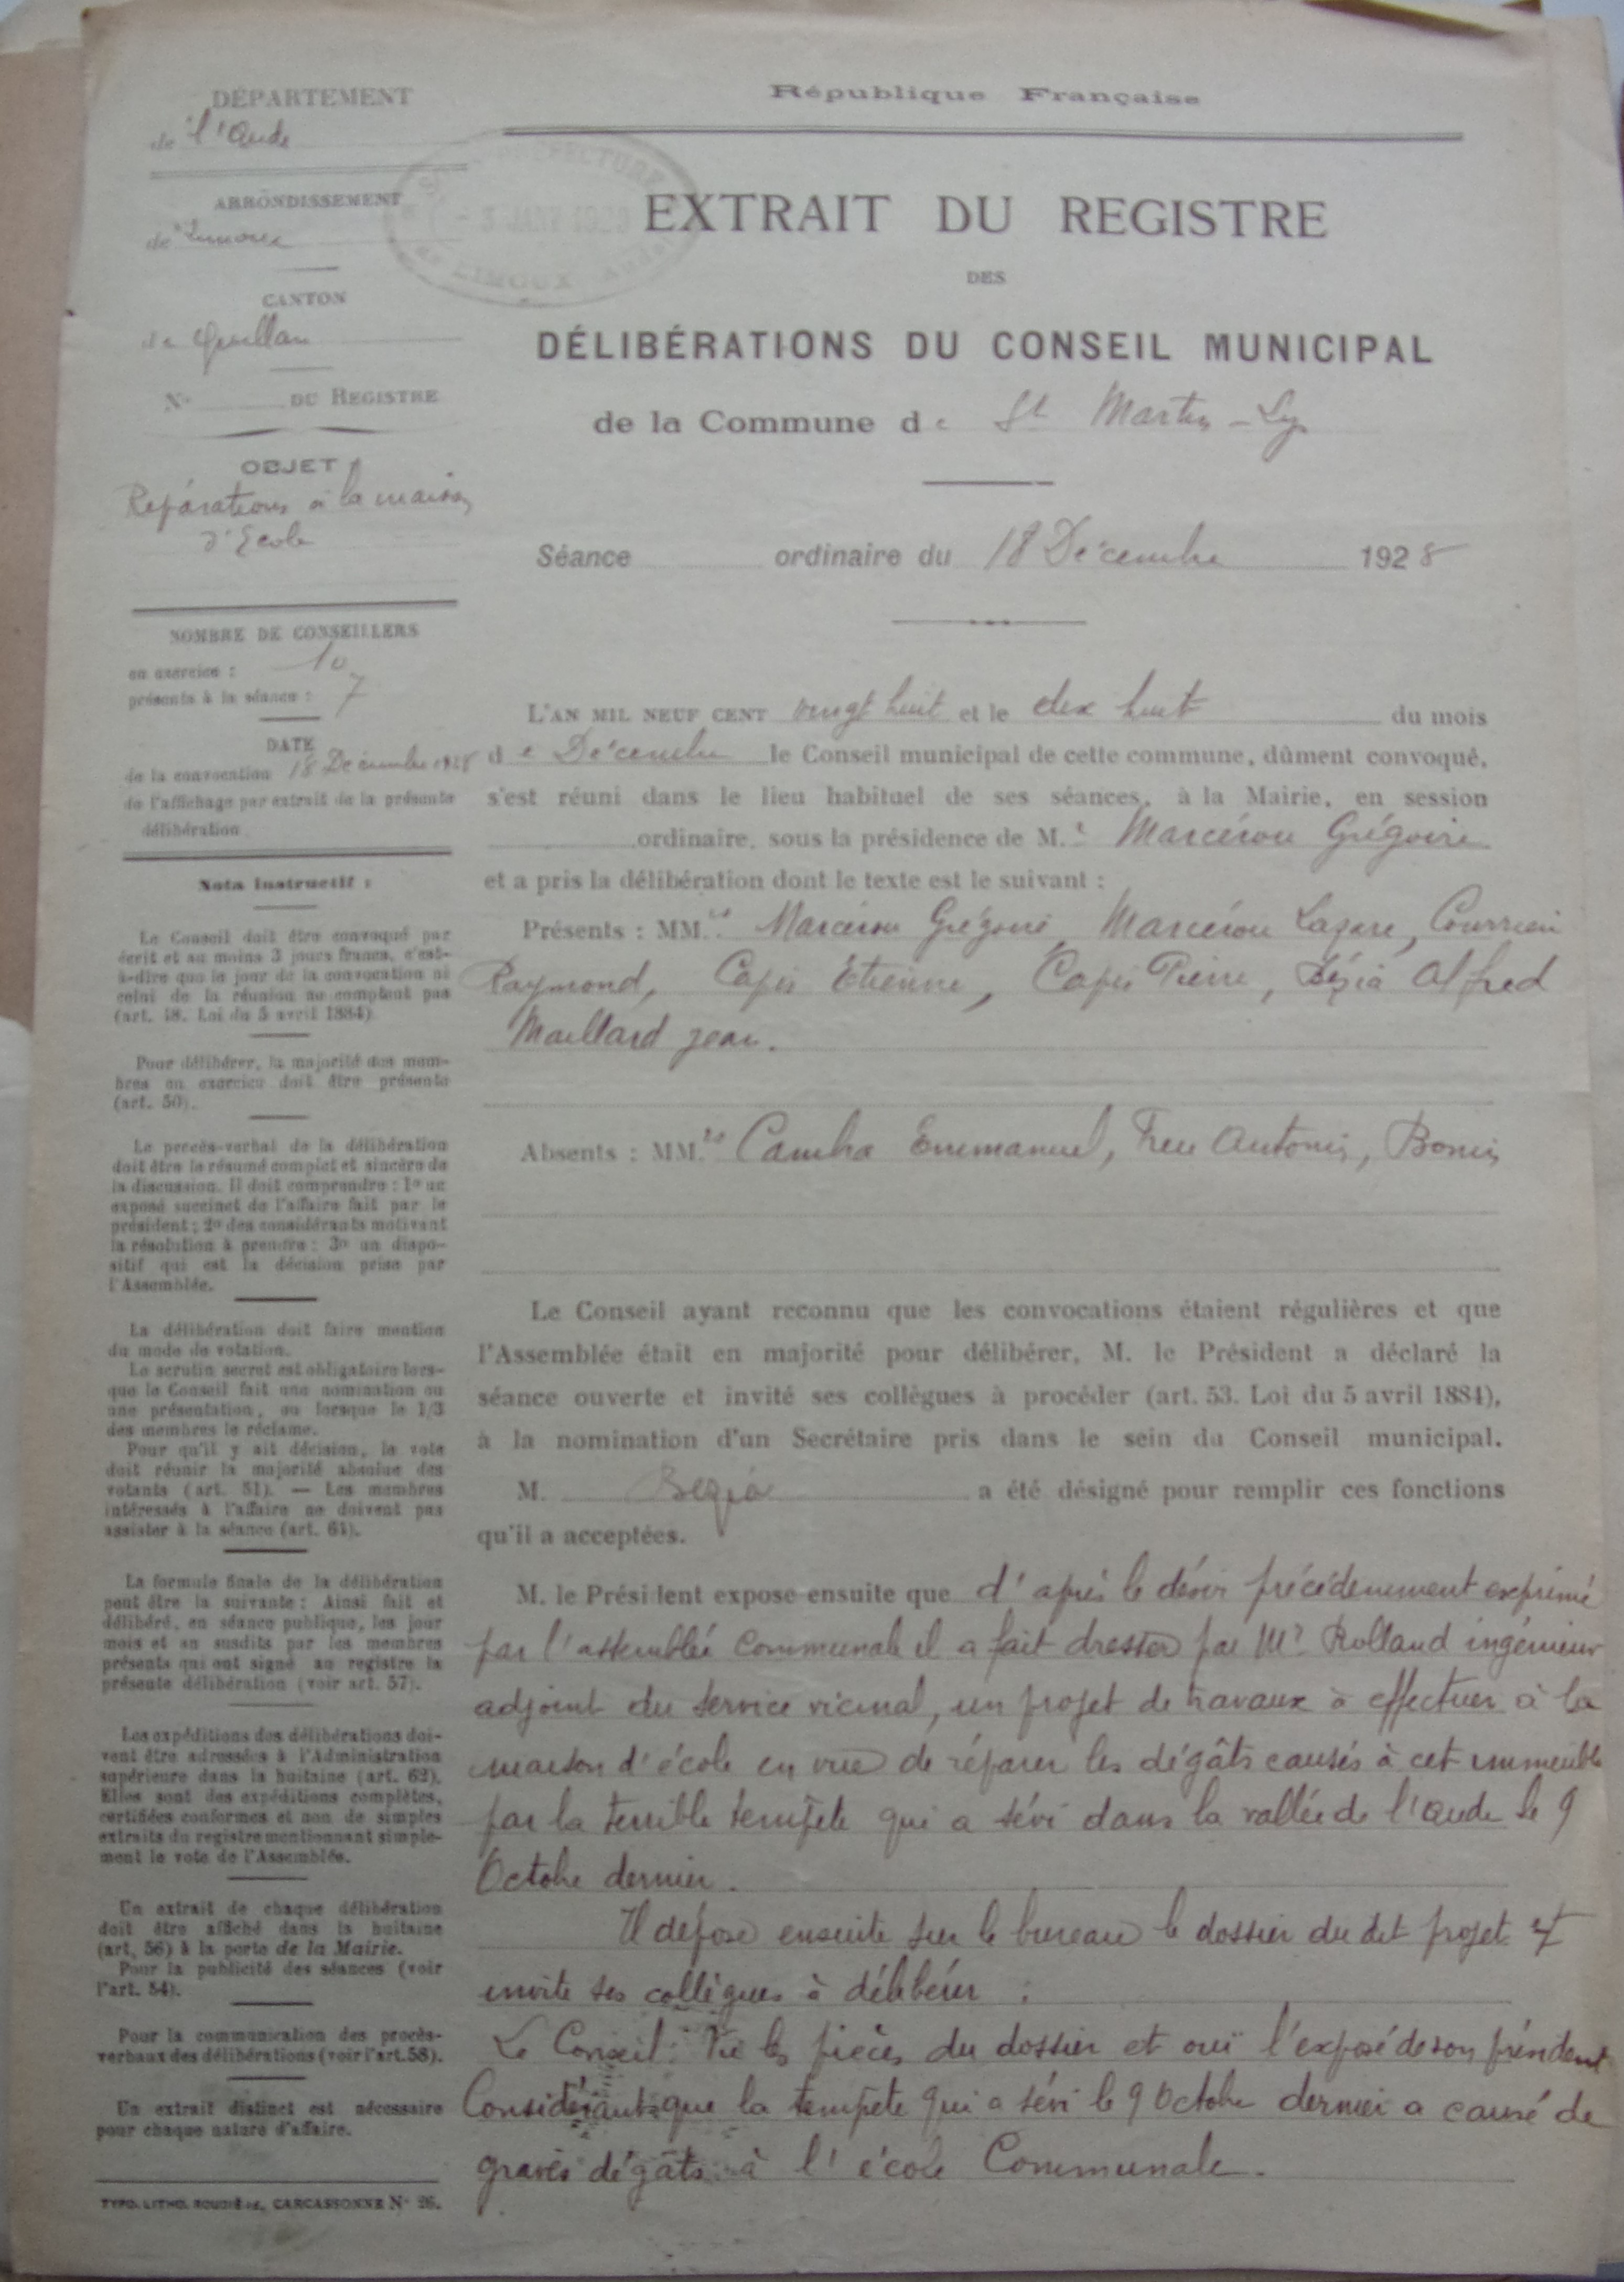 DÉPARTEMENT
de l'Aude
ARRONDISSEMENT
de Limoux
CANTON
de Quillan
N° DU REGISTRE
OBJET
Réparations à la maison
d'Ecole
NOMBRE DE CONSEILLERS
en exercice : 10
présents à la séance : 7
DATE
de la convocation 18 Décembre 1928
de l'affichage par extrait de la présente
délibération
Nota Instructif :
Le Conseil doit être convoqué par
écrit et au moins 3 jours francs, c'est-
à-dire que le jour de la convocation ni
celui de la réunion ne comptent pas
(art. 48. Loi du 5 avril 1884)
Pour délibérer, la majorité des mem-
bres en exercice doit être présente
(art. 50).
Le procès-verbal de la délibération
doit être le résumé complet et sincère de
la discussion. Il doit comprendre : 1° un
exposé succinct de l'affaire fait par le
président ; 2° des considérants motivant
la résolution à prendre ; 3° un dispo-
sitif qui est la décision prise par
l'Assemblée.
La délibération doit faire mention
du mode de votation.
Le scrutin secret est obligatoire lors-
que le Conseil fait une nomination ou
une présentation, ou lorsque le 1/3
des membres le réclame.
Pour qu'il y ait décision, le vote
doit réunir la majorité absolue des
votants (art. 51). — Les membres
intéressés à l'affaire ne doivent pas
assister à la séance (art. 64).
La formule finale de la délibération
peut être la suivante : Ainsi fait et
délibéré, en séance publique, les jour
mois et an susdits par les membres
présents qui ont signé au registre la
présente délibération (voir art. 57).
Les expéditions des délibérations doi-
vent être adressées à l'Administration
supérieure dans la huitaine (art. 62).
Elles sont des expéditions complètes,
certifiées conformes et non de simples
extraits du registre mentionnant simple-
ment le vote de l'Assemblée.
Un extrait de chaque délibération
doit être affiché dans la huitaine
(art, 56) à la porte de la Mairie.
Pour la publicité des séances (voir
l'art. 54).
Pour la communication des procès-
verbaux des délibérations (voir l'art. 58).
Un extrait distinct est nécessaire
pour chaque nature d'affaire.
TYPO. LITHO. CARCASSONNE N° 26.
République Française
PRÉFECTURE
- 3 JANV 1929
de LIMOUX Aude
EXTRAIT DU REGISTRE
DES
DÉLIBÉRATIONS DU CONSEIL MUNICIPAL
de la Commune de St Martin-Lys
Séance ordinaire du 18 Décembre 1928
L'AN MIL NEUF CENT vingt huit et le dix huit du mois
de Décembre le Conseil municipal de cette commune, dûment convoqué,
s'est réuni dans le lieu habituel de ses séances, à la Mairie, en session
ordinaire, sous la présidence de M.r Marcérou Grégoire
et a pris la délibération dont le texte est le suivant :
Présents : MM.rs Marcérou Grégoire, Marcérou Lazare, Courrieu
Raymond, Capis Etienne, Capis Pierre, Bézia Alfred
Maillard jean.
Absents : MM.rs Cambra Emmanuel, Antonin, Bonis
Le Conseil ayant reconnu que les convocations étaient régulières et que
l'Assemblée était en majorité pour délibérer, M. le Président a déclaré la
séance ouverte et invité ses collègues à procéder (art. 53. Loi du 5 avril 1884),
à la nomination d'un Secrétaire pris dans le sein du Conseil municipal.
M. Bezia a été désigné pour remplir ces fonctions
qu'il a acceptées.
M. le Président expose ensuite que d'après le désir précédemment exprimé
par l'assemblée Communale il a fait dresser par Mr Rolland ingénieur
adjoint du service vicinal, un projet de travaux à effectuer à la
maison d'école en vue de réparer les dégâts causés à cet immeuble
par la terrible tempête qui a sévi dans la vallée de l'Aude le 9
Octobre dernier.
Il dépose ensuite sur le bureau le dossier du dit projet et
invite ses collègues à délibérer :
Le Conseil : Vu les pièces du dossier et ouï l'exposé de son président
Considérant que la tempête qui a sévi le 9 Octobre dernier a causé de
graves dégâts à l'école Communale.